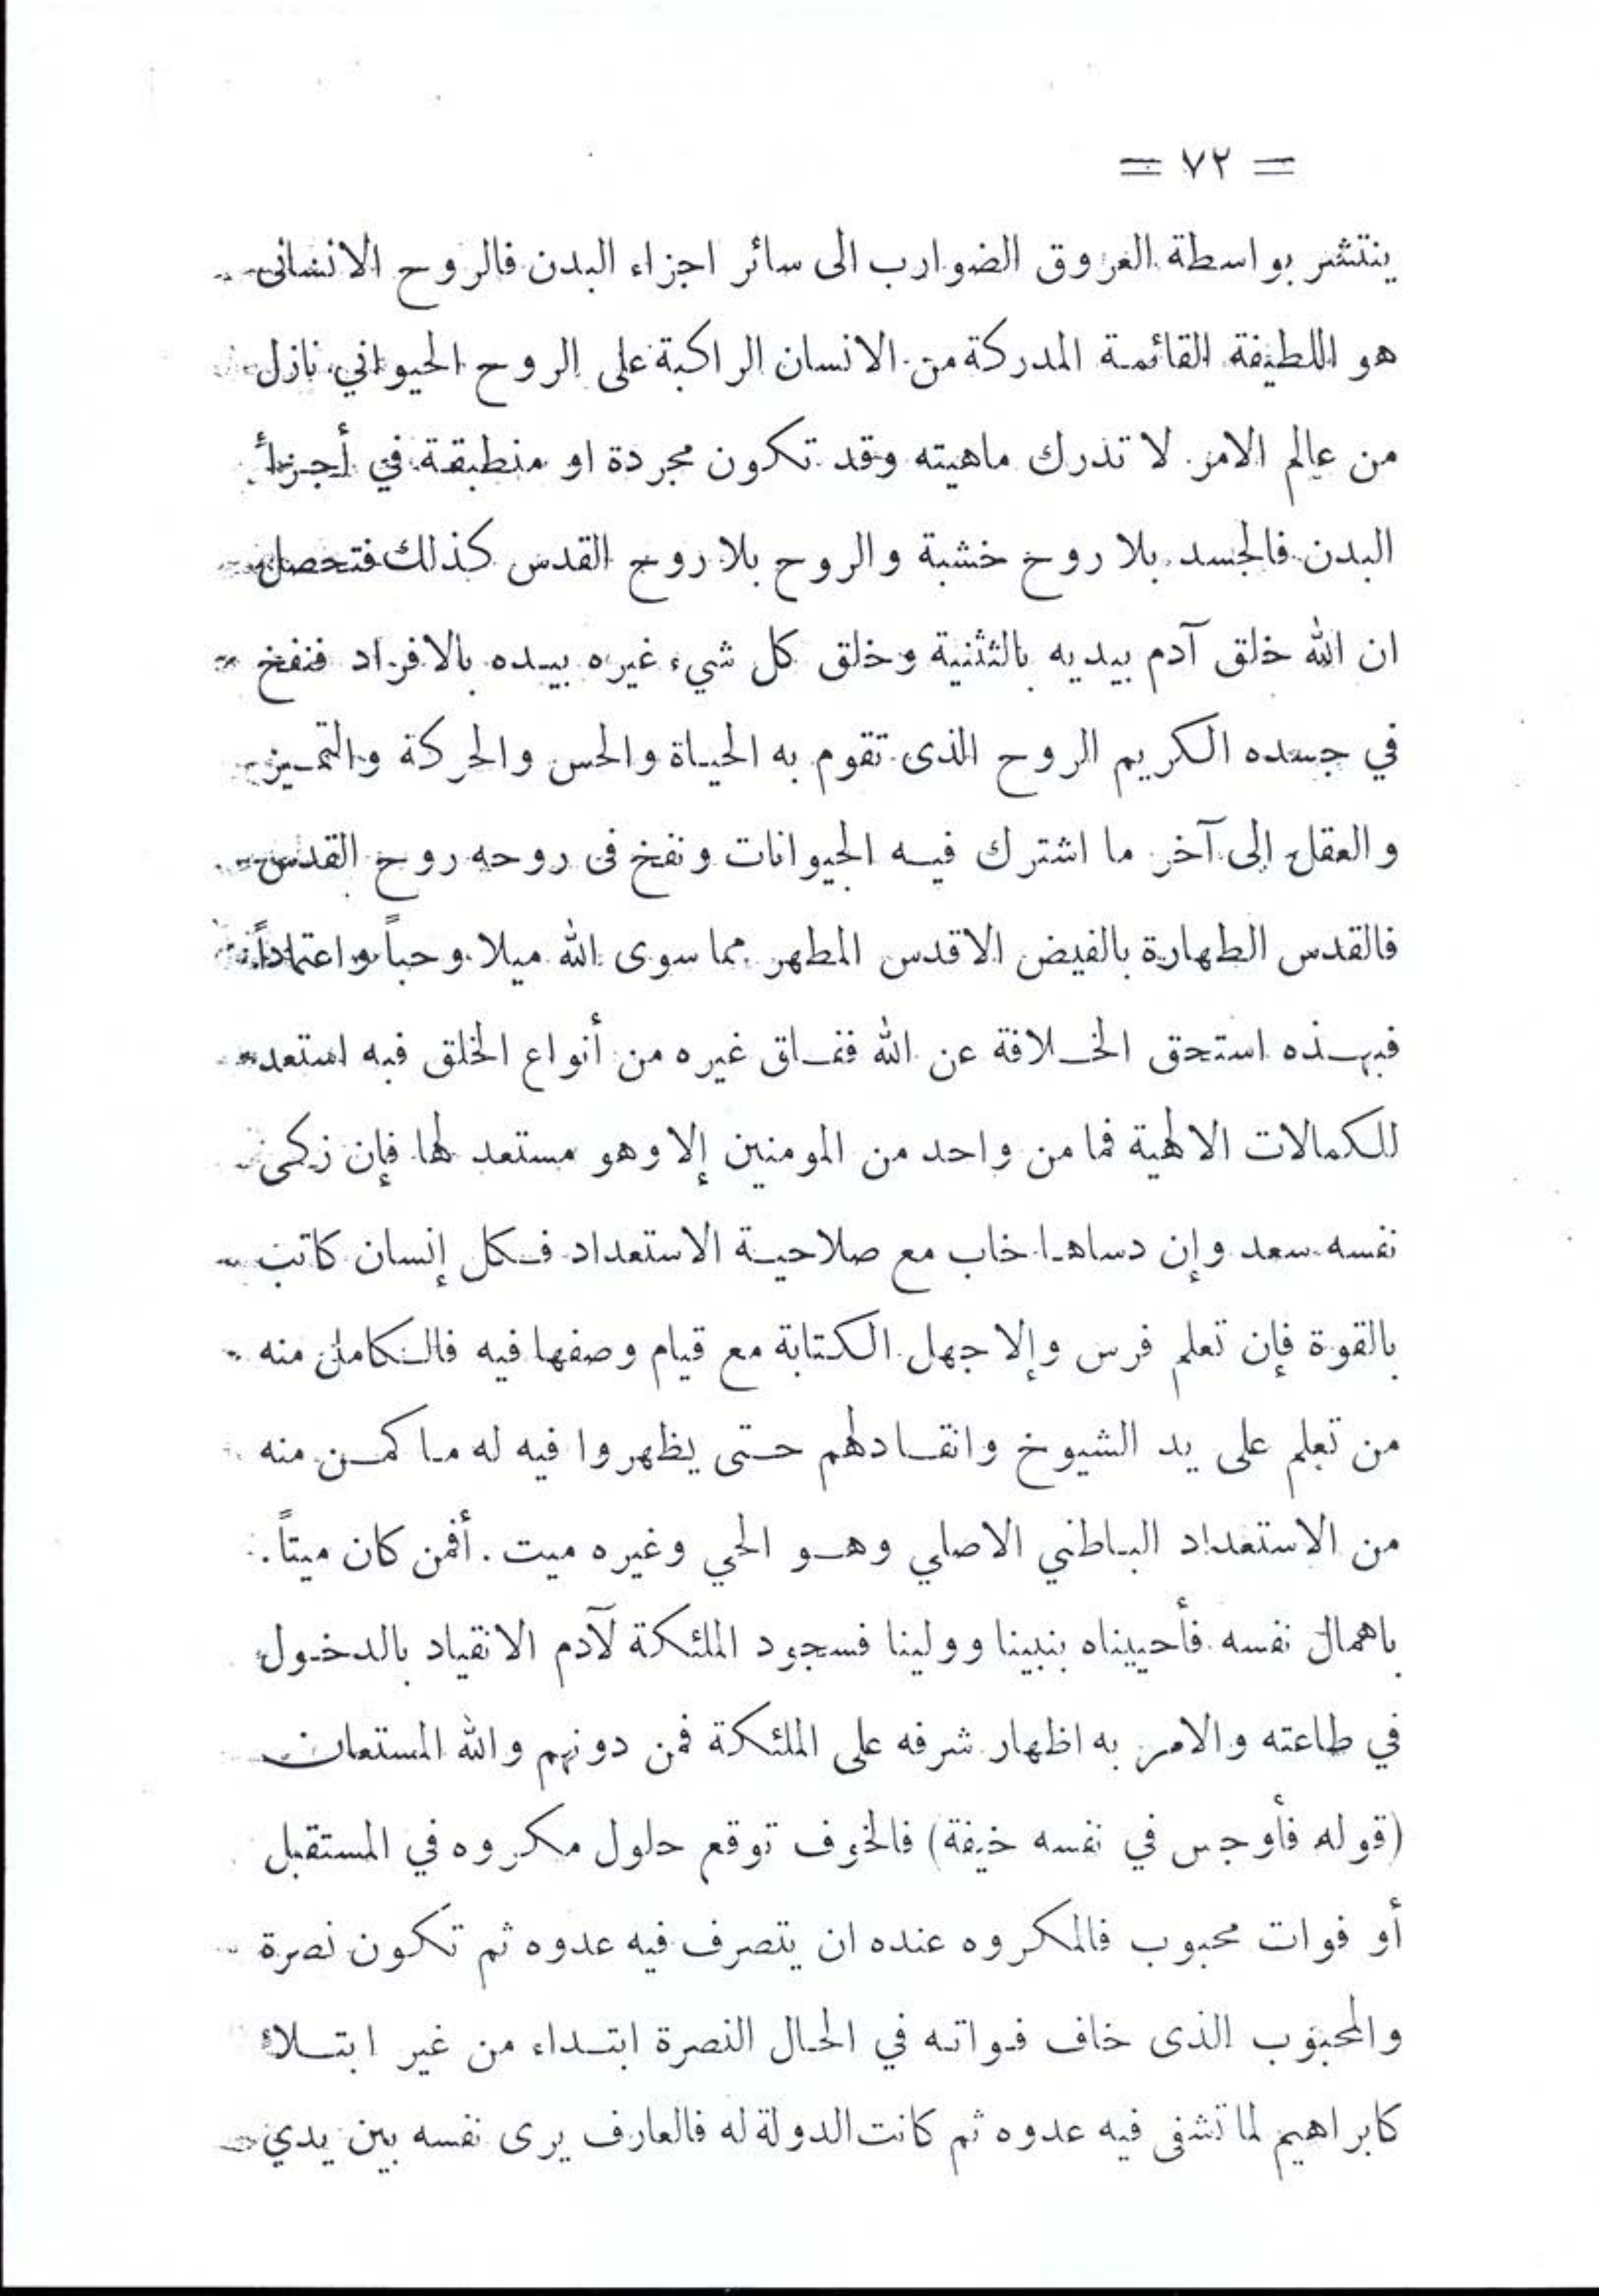 = ٧٢ =
ينتشر بواسطة العروق الضوارب الى سائر اجزاء البدن فالروح الانسانى
هو اللطيفة القائمة المدركة من الانسان الراكبة على الروح الحيواني نازل
من عالم الامر لا تدرك ماهيته وقد تكون مجردة او منطبقة في أجزأ
البدن فالجسد بلا روح خشبة والروح بلا روح القدس كذلك فتحصل
ان الله خلق آدم بيديه بالتثنية وخلق كل شيء غيره بيده بالافراد فنفخ
في جسده الكريم الروح الذى تقوم به الحياة والحس والحركة والتمييز
والعقل إلى آخر ما اشترك فيه الحيوانات ونفخ فى روحه روح القدس
فالقدس الطهارة بالفيض الاقدس المطهر مما سوى الله ميلا وحباً واعتماداً
فبهذه استحق الخلافة عن الله ففاق غيره من أنواع الخلق فبه استعد
للكمالات الالهية فما من واحد من المومنين إلا وهو مستعد لها فإن زكى
نفسه سعد وإن دساها خاب مع صلاحية الاستعداد فكل إنسان كاتب
بالقوة فإن تعلم فرس وإلا جهل الكتابة مع قيام وصفها فيه فالكامل منه
من تعلم على يد الشيوخ وانقادلهم حتى يظهروا فيه له ما كمن منه
من الاستعداد الباطني الاصلي وهو الحي وغيره ميت . أفمن كان ميتاً .
باهمال نفسه فأحييناه بنبينا وولينا فسجود الملئكة لآدم الانقياد بالدخول
في طاعته والامر به اظهار شرفه على الملئكة فمن دونهم والله المستعان
(قوله فأوجس في نفسه خيفة) فالخوف توقع حلول مكروه في المستقبل
أو فوات محبوب فالمكروه عنده ان يتصرف فيه عدوه ثم تكون نصرة
والمحبوب الذى خاف فواته في الحال النصرة ابتداء من غير ابتلاء
كابراهيم لما تشفى فيه عدوه ثم كانت الدولة له فالعارف يرى نفسه بين يدي